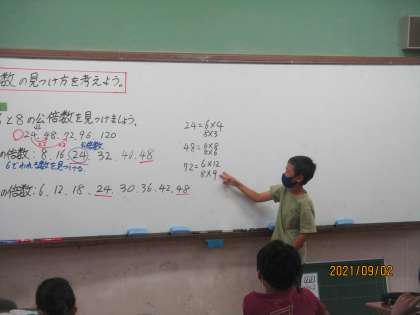 数の見つけ方を考えよう。
と8の公倍数を見つけましょう。
24, 48, 72, 96, 120
の倍数:8, 16, 24, 32, 40, 48
公倍数
6でわれる数を見つける。
の倍数:6, 12, 18, 24, 30, 36, 42, 48
24=6×4
8×3
48=6×8
8×6
72=6×12
8×9
2021/09/02